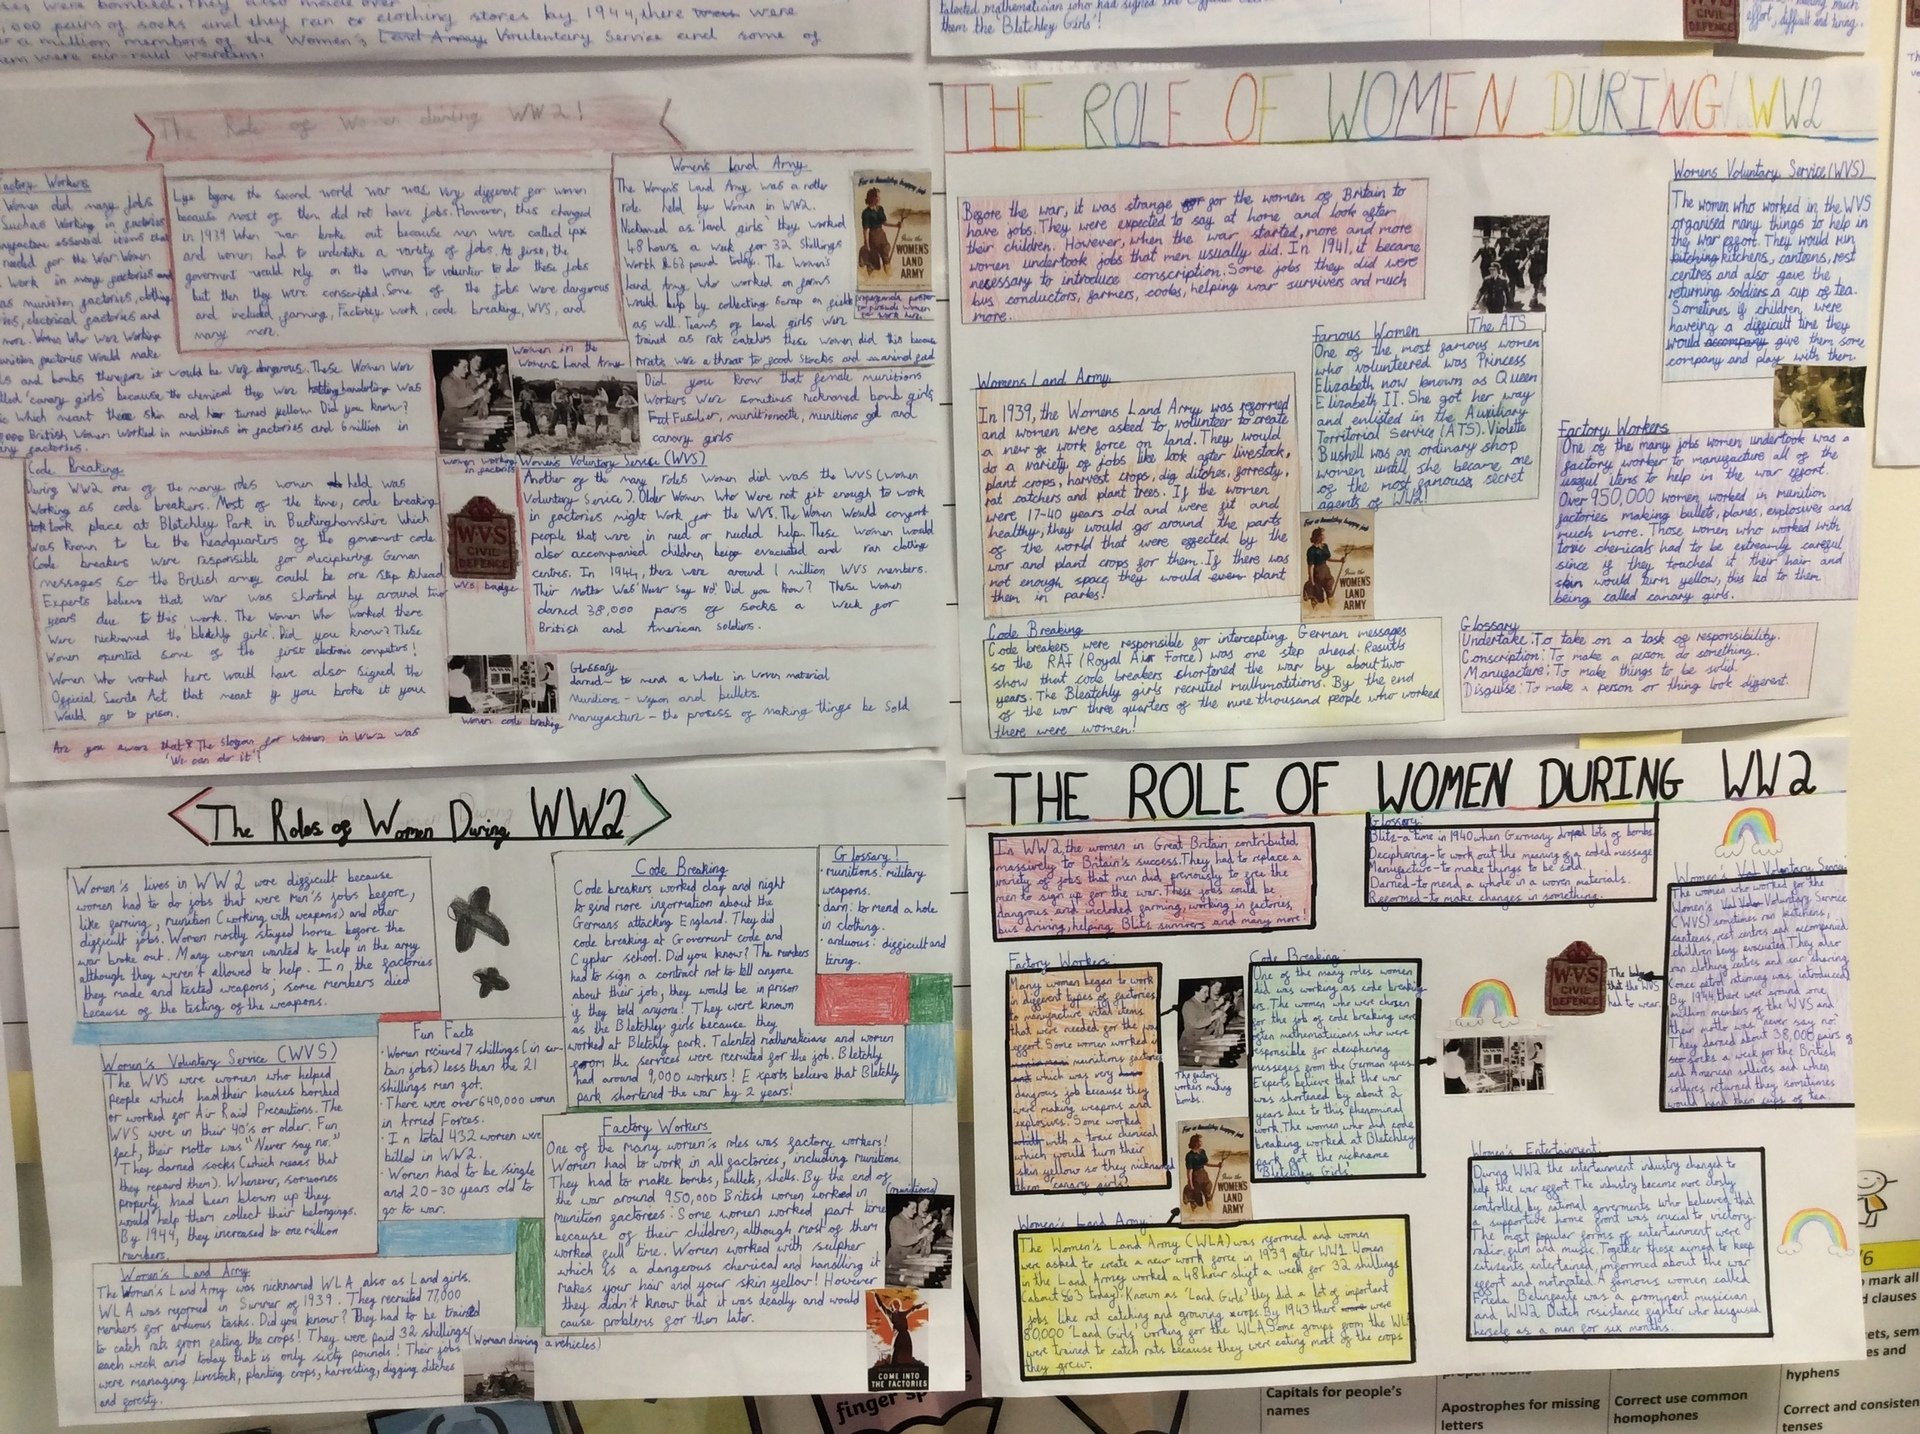 ,000 pairs of socks and they ran or clothing stores by 1944, there were
a million members of the Women's Land Army Voulentary Service and some of
em were air-raid wardens!
talented mathematician who had signed the
them the 'Bletchley Girls'!
WVS
CIVIL
DEFENCE
effort, difficult and tiring.
The Role of Women during WW2!
Factory Workers
Women did many jobs
Such as Working in factories
needed for the War Women
work in many factories and
as munition factories, clothing
electrical factories and
more. Women Who Were Working
munition factories would make
and bombs therefore it would be very dangerous. These Women Were
called 'canary girls' because the chemical they were handling was
which meant there skin and hair turned yellow. Did you know?
,000 British Women Worked in munitions in factories and 6 million in
factories.
Life before the second world war was very different for women
because most of them did not have jobs. However, this changed
in 1939 when war broke out because men were called up
and women had to undertake a variety of jobs. At first, the
goverment would rely on the women to volunteer to do these jobs
but then they were conscripted. Some of the jobs were dangerous
and included farming, Factory work, code breaking, WVS, and
many more.
Women's Land Army
The Women's Land Army was a nother
role held by Women in WW2.
Nicknamed as 'land girls' they worked
48 hours a week for 32 Shillings
Worth £63 pound today. The Women's
land Army who worked on farms
Would help by collecting scrap on fields
as well. Teams of land girls were
trained as rat catchers these women did this because
rats were a threat to food stocks and
For a healthy, happy job
Join the
WOMEN'S
LAND
ARMY
propaganda poster
Women in the
Womens Land Army
women working
in factories
Did you know that female munitions
Workers Were sometimes nicknamed bomb girls,
munitionette, munitions gal and
canary girls
Code Breaking
During WW2 one of the many roles women held was
Working as code breakers. Most of the time, code breaking
took place at Bletchley Park in Buckinghamshire which
was known to be the headquarters of the goverment code.
Code breakers were responsible for deciphering German
messages so the British army could be one step ahead.
Experts believe that war was shortend by around two
years due to this work. The Women Who worked there
Were nicknamed the 'bletchly girls'. Did you know? These
Women operated some of the first electronic computers!
Women who worked here would have also signed the
Official Secrets Act that meant if you broke it you
Would go to prison.
Are you aware that? The slogan for women in WW2 was
'We can do it'!
WVS
CIVIL
DEFENCE
WVS badge
Women code breaking
Women's Voluntary Service (WVS)
Another of the many roles Women did was the WVS (Women
Voluntary Service). Older Women who Were not fit enough to work
in factories might Work for the WVS. The Women Would comfort
people that were in need or needed help. These women would
also accompanied children being evacuated and ran clothing
centres. In 1944, there were around 1 million WVS members.
Their motto Was 'Never Say No'. Did you Know? These Women
darned 38,000 pairs of socks a week for
British and American soldiers.
Glossary
darned - to mend a whole in woven material
Munitions - wepon and bullets.
manufacture - the process of making things be sold
THE ROLE OF WOMEN DURING WW2
Before the war, it was strange for for the women of Britain to
have jobs. They were expected to say at home and look after
their children. However, when the war started, more and more
women undertook jobs that men usually did. In 1941, it became
necessary to introduce conscription. Some jobs they did were
bus conductors, farmers, cooks, helping war survivers and much
more.
The ATS
Womens Voluntary Service (WVS)
The women who worked in the WVS
organised many things to help in
the war effort. They would run
kitching kitchens, canteens, rest
centres and also gave the
returning soldiers a cup of tea.
Sometimes if children were
haveing a difficult time they
would accompany give them some
company and play with them.
Famous Women
One of the most famous women
who volunteered was Princess
Elizabeth now known as Queen
Elizabeth II. She got her way
and enlisted in the Auxiliary
Territorial Service (ATS). Violette
Bushell was an ordinary shop
women untill she became one
of the most famouse secret
agents of WW2!
Womens Land Army
In 1939, the Womens Land Army was reformed
and women were asked to volunteer to create
a new work force on land. They would
do a variety of jobs like look after livestock,
plant crops, harvest crops, dig ditches, forrestry,
rat catchers and plant trees. If the women
were 17-40 years old and were fit and
healthy, they would go around the parts
of the world that were effected by the
war and plant crops for them. If there was
not enough space they would even plant
them in parks!
For a healthy, happy job
Join the
WOMEN'S
LAND
ARMY
Factory Workers
One of the many jobs women undertook was a
factory worker to manufacture all of the
useful items to help in the war effort.
Over 950,000 women worked in munition
factories making bullets, planes, explosives and
much more. Those women who worked with
toxic chemicals had to be extreamly careful
since if they touched it, their hair and
skin would turn yellow, this led to them
being called canary girls.
Code Breaking
Code breakers were responsible for intercepting German messages
so the RAF (Royal Air Force) was one step ahead. Results
show that code breakers shortened the war by about two
years. The Bleatchly girls recruted mathmatitions. By the end
of the war three quarters of the nine thousand people who worked
there were women!
Glossary
Undertake: To take on a task of responsibility.
Conscription: To make a person do something.
Manufacture: To make things to be sold.
Disguise: To make a person or thing look different.
The Roles of Women During WW2
Women's lives in WW2 were difficult because
women had to do jobs that were men's jobs before,
like farming, munition (working with weapons) and other
difficult jobs. Women mostly stayed home before the
war broke out. Many women wanted to help in the army
although they weren't allowed to help. In the factories
they made and tested weapons; some members died
because of the testing of the weapons.
Women's Voluntary Service (WVS)
The WVS were women who helped
people which had their houses bombed
or worked for Air Raid Precautions. The
WVS were in their 40's or older. Fun
fact, their motto was "Never say no."
They darned socks (which means that
they repaired them). Whenever, someones
property had been blown up they
would help them collect their belongings.
By 1944, they increased to one million
members.
Fun Facts
Women recieved 7 shillings (in cer-
tain jobs) less than the 21
shillings men got.
There were over 640,000 women
in Armed Forces.
In total 432 women were
killed in WW2.
Women had to be single
and 20-30 years old to
go to war.
Women's Land Army
The Women's Land Army was nicknamed WLA also as Land girls.
WLA was reformed in Summer of 1939. They recruited 77,000
members for arduous tasks. Did you know? They had to be trained
to catch rats from eating the crops! They were paid 32 shillings
each week and today that is only sixty pounds! Their jobs
were managing livestock, planting crops, harvesting, digging ditches
and foresty.
(Woman driving a vehicles)
Code Breaking
Code breakers worked day and night
to find more information about the
Germans attacking England. They did
code breaking at Goverment code and
Cypher school. Did you know? The members
had to sign a contract not to tell anyone
about their job, they would be in prison
if they told anyone! They were known
as the Bletchly girls because they
worked at Bletchly park. Talented mathematicians and women
from the services were recruited for the job. Bletchly
had around 9,000 workers! Experts believe that Bletchly
park shortened the war by 2 years!
Glossary!
munitions: military
weapons.
darn: to mend a hole
in clothing.
arduous: difficult and
tiring.
Factory Workers
One of the many women's roles was factory workers!
Women had to work in all factories, including munitions.
They had to make bombs, bullets, shells. By the end of
the war around 950,000 British women worked in
munition factories. Some women worked part time
because of their children, although most of them
worked full time. Women worked with sulpher
which is a dangerous chemical and handling it
makes your hair and your skin yellow! However
they didn't know that it was deadly and would
cause problems for them later.
(munitions)
COME INTO
THE FACTORIES
THE ROLE OF WOMEN DURING WW2
In WW2, the women in Great Britain contributed
massively to Britain's success. They had to replace a
variety of jobs that men did previously to free the
men to sign up for the war. These jobs could be
dangerous and included farming, working in factories,
bus driving, helping Blitz survivors and many more!
Glossary:
Blitz-a time in 1940 when Germany droped lots of bombs.
Deciphering-to work out the meaning of a coded message
Manufacture-to make things to be sold.
Darned-to mend a whole in a woven materials.
Reformed-to make changes in something.
Factory Workers:
Many women began to work
in different types of factories
to manufacture vital items
that were needed for the war
effort. Some women worked in
munitions factories
which was very
dangerous job because they
were making weapons and
explosives. Some worked
with a toxic chemical
which would turn their
skin yellow so they nicknamed
them 'canary girls'!
The factory
workers making
bombs.
For a healthy, happy job
Join the
WOMEN'S
LAND
ARMY
Code Breaking:
One of the many roles women
did was working as code breaky-
ers. The women who were chosen
for the job of code breaking were
often mathematicians who were
responsible for deciphering
messeges from the German spies.
Experts believe that the war
was shortened by about 2
years due to this phenomenal
work. The women who did code
breaking worked at Bletchley
park got the nickname
'Bletchley Girls'
WVS
CIVIL
DEFENCE
The badge
that the WVS
had to wear.
Women's Vol Voluntary Service
The women who worked for the
Women's Voluntary Service
(WVS) sometimes ran kitchens,
canteens, rest centres and accompanied
children being evacuated. They also
ran clothing centres and car sharing
(once petrol rationing was introduced.
By 1944 there were around one
million members of the WVS and
their motto was "never say no".
They darned about 38,000 pairs of
socks a week for the British
and American soldiers and when
soldires returned they sometimes
would hand them cups of tea.
Women's Land Army:
The Women's Land Army (WLA) was reformed and women
were asked to create a new work force in 1939 after WW1. Women
in the Land Armey worked a 48 hour shift a week for 32 shillings
(about £63 today). Known as 'Land Girls' they did a lot of important
jobs like rat catching and growing crops. By 1943 there were
80,000 'Land Girls' working for the WLA. Some groups from the WLA
were trained to catch rats because they were eating most of the crops
they grew.
Women's Entertainment:
During WW2 the entertainment industry changed to
help the war effort. The industry became more closly
controlled by national goverments who believed that
a supportive home front was crucial to victory.
The most popular forms of entertainment were
radio, film and music. Together these aimed to keep
citisents entertained, informed about the war
effort and motivated. A famous women called
Frieda Belinfante was a prominent musician
and WW2 Dutch resistance fighter who disguised
herself as a man for six months.
/6
mark all
d clauses
sem
es and
hyphens
Correct and consisten
tenses
finger sp
Capitals for people's
names
proper nouns
Apostrophes for missing
letters
Correct use common
homophones